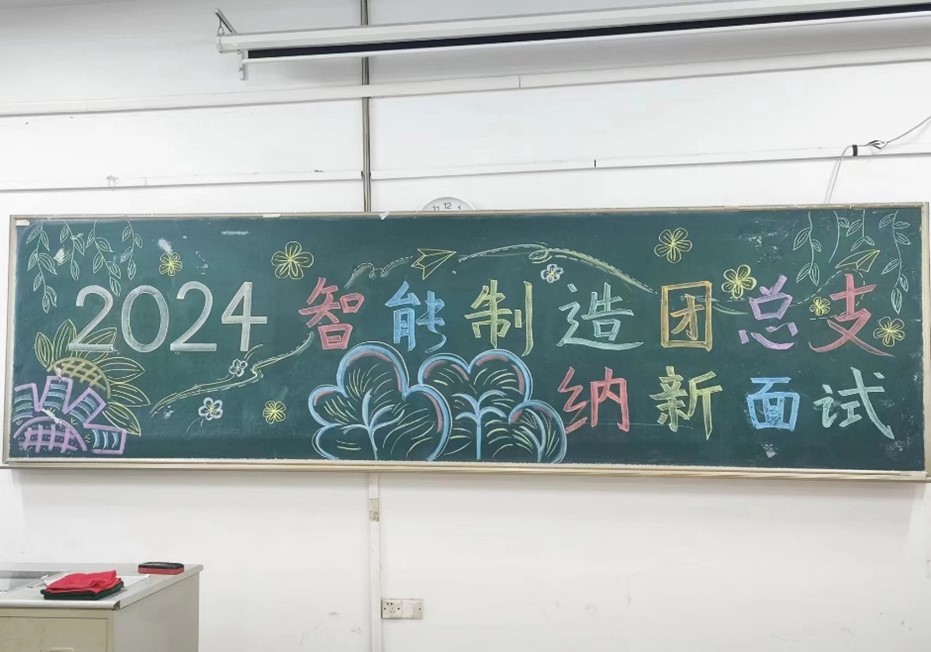 11 12 1
2024 智能制造团总支
纳新面试